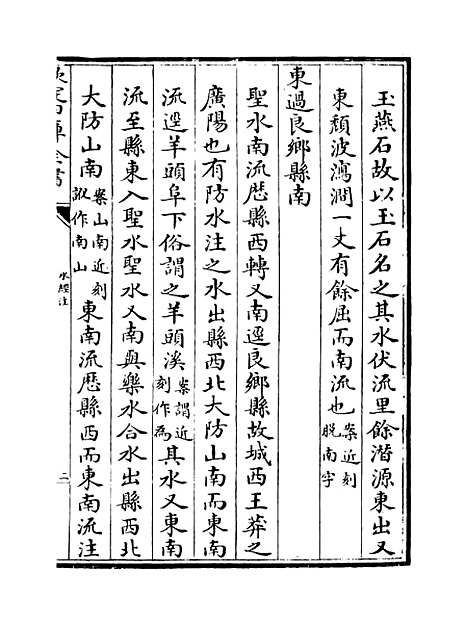 玉燕石故以玉石名之其水伏流里餘潛源東出又
東頽波瀉澗一丈有餘屈而南流也案近刻脱南字
東過良鄉縣南
聖水南流歴縣西轉又南逕良鄉縣故城西王莽之
廣陽也有防水注之水出縣西北大防山南而東南
流逕羊頭阜下俗謂之羊頭溪案謂近刻作為其水又東南
流至縣東入聖水聖水又南與樂水合水出縣西北
大防山南案山南近刻訛作南山東南流歴縣西而東南流注
欽定四庫全書
水經注
二